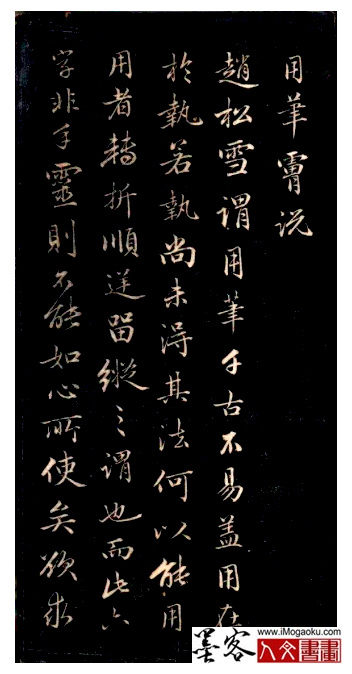 用筆说
趙松雪谓用筆千古不易盖用在
於執若執尚未得其法何以能用
用者轉折順逆留縱之谓也而此六
字非手靈則不能如心所使矣欲求
墨客
www.iMogaoku.com
人文書畫